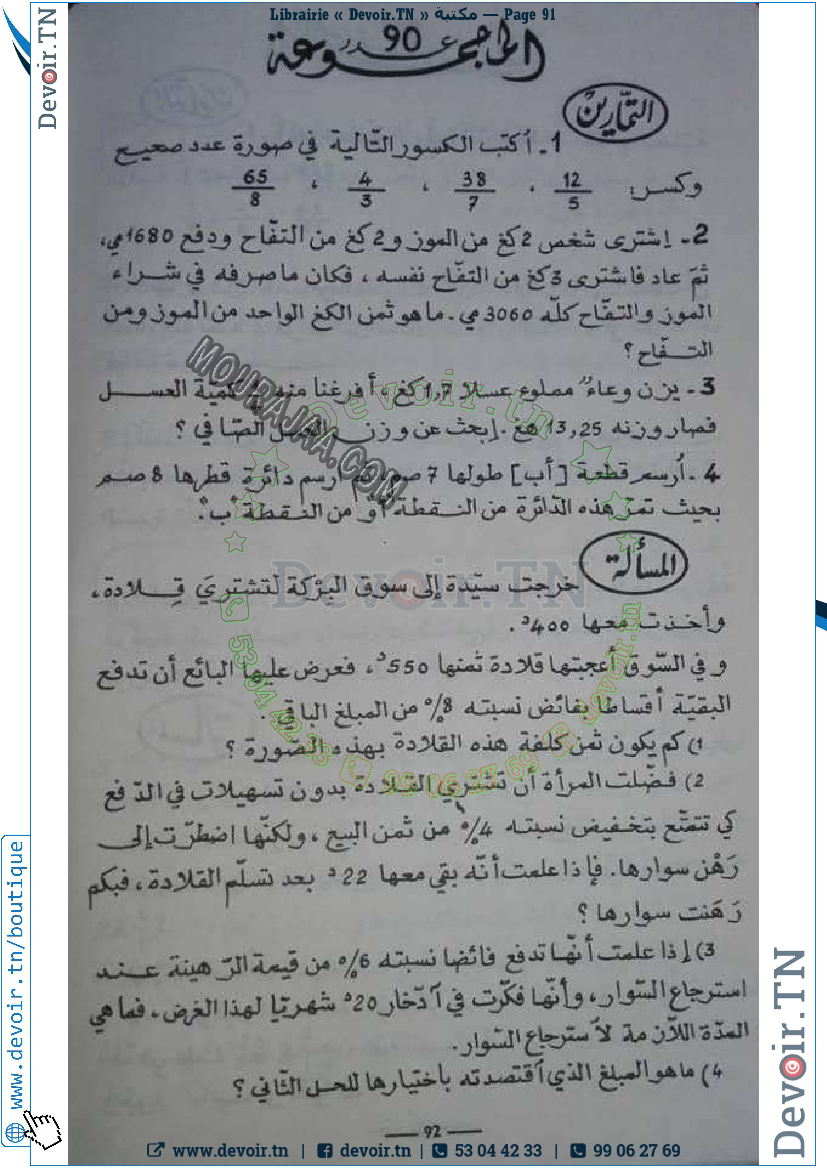 Librairie « Devoir.TN » مكتبة — Page 91
المجموعة عدد 90
التمارين
1- أكتب الكسور التالية في صورة عدد صحيح
وكسر: 12/5 ، 38/7 ، 4/3 ، 65/8
2- اشترى شخص 2 كغ من الموز و 2 كغ من التفّاح ودفع 1680 مي،
ثمّ عاد فاشترى 3 كغ من التفّاح نفسه ، فكان ما صرفه في شراء
الموز والتفّاح كلّه 3060 مي. ما هو ثمن الكغ الواحد من الموز ومن
التفّاح ؟
3- يزن وعاء مملوء عسلا 1,7 كغ، أفرغنا منه كميّة العسل
فصار وزنه 13,25 هغ. إبحث عن وزن العسل الصّافي ؟
4- أرسم قطعة [أب] طولها 7 صم، ثم أرسم دائرة قطرها 8 صم
بحيث تمرّ هذه الدّائرة من النقطة "أ" و من النقطة "ب".
المسألة
خرجت سيّدة إلى سوق البركة لتشتري قلادة،
وأخذت معها 400د.
و في السّوق أعجبتها قلادة ثمنها 550د، فعرض عليها البائع أن تدفع
البقيّة أقساطا بفائض نسبته 8% من المبلغ الباقي .
1) كم يكون ثمن كلفة هذه القلادة بهذه الصّورة ؟
2) فضّلت المرأة أن تشتري القلادة بدون تسهيلات في الدّفع
كي تتمتّع بتخفيض نسبته 4% من ثمن البيع ، ولكنّها اضطرّت إلى
رَهْن سوارها. فإذا علمت أنّه بقي معها 22د بعد تسلّم القلادة ، فبكم
رَهَنت سوارها ؟
3) إذا علمت أنّها تدفع فائضا نسبته 6% من قيمة الرّهينة عند
استرجاع السّوار ، وأنّها فكّرت في آدّخار 20د شهريّا لهذا الغرض ، فما هي
المدّة اللاّزمة لاسترجاع السّوار.
4) ما هو المبلغ الذي آقتصدته باختيارها للحل الثّاني ؟
92
Devoir.TN
www.devoir.tn/boutique
Devoir.TN
MOURAJAA.COM
Devoir.tn
Devoir.TN
53 04 42 33
99 06 27 69
devoir.tn
www.devoir.tn | devoir.tn | 53 04 42 33 | 99 06 27 69